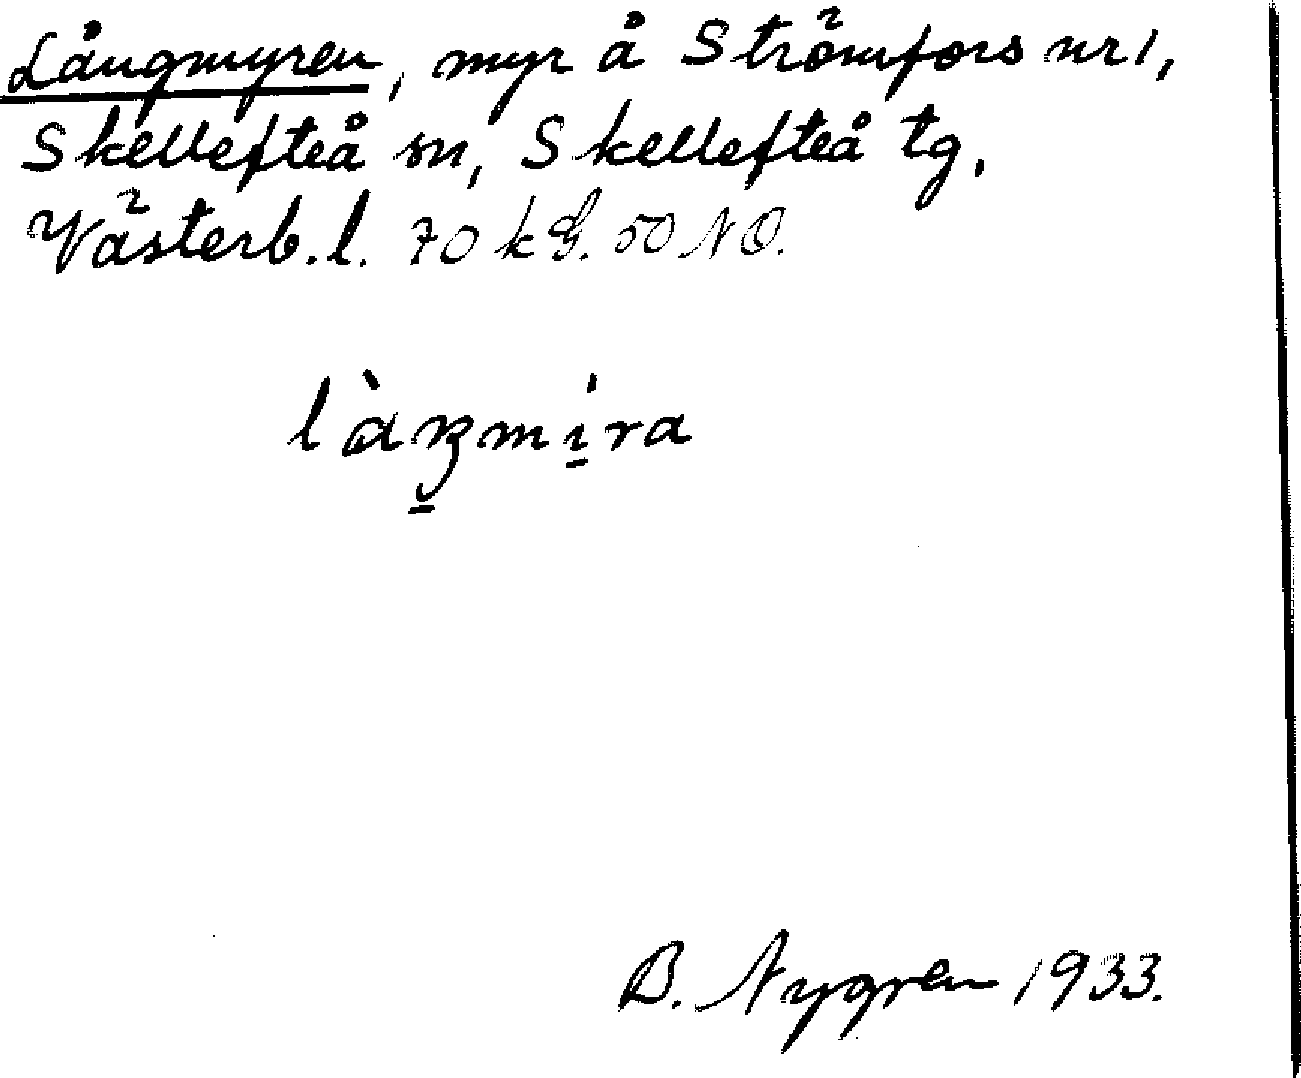 Långmyren, myr å Strömfors nr 1,
Skellefteå sn, Skellefteå tg.
Västerb. l. 70 kG. 50 NO.
làŋ̱mi̱ra
B. Nygren 1933.